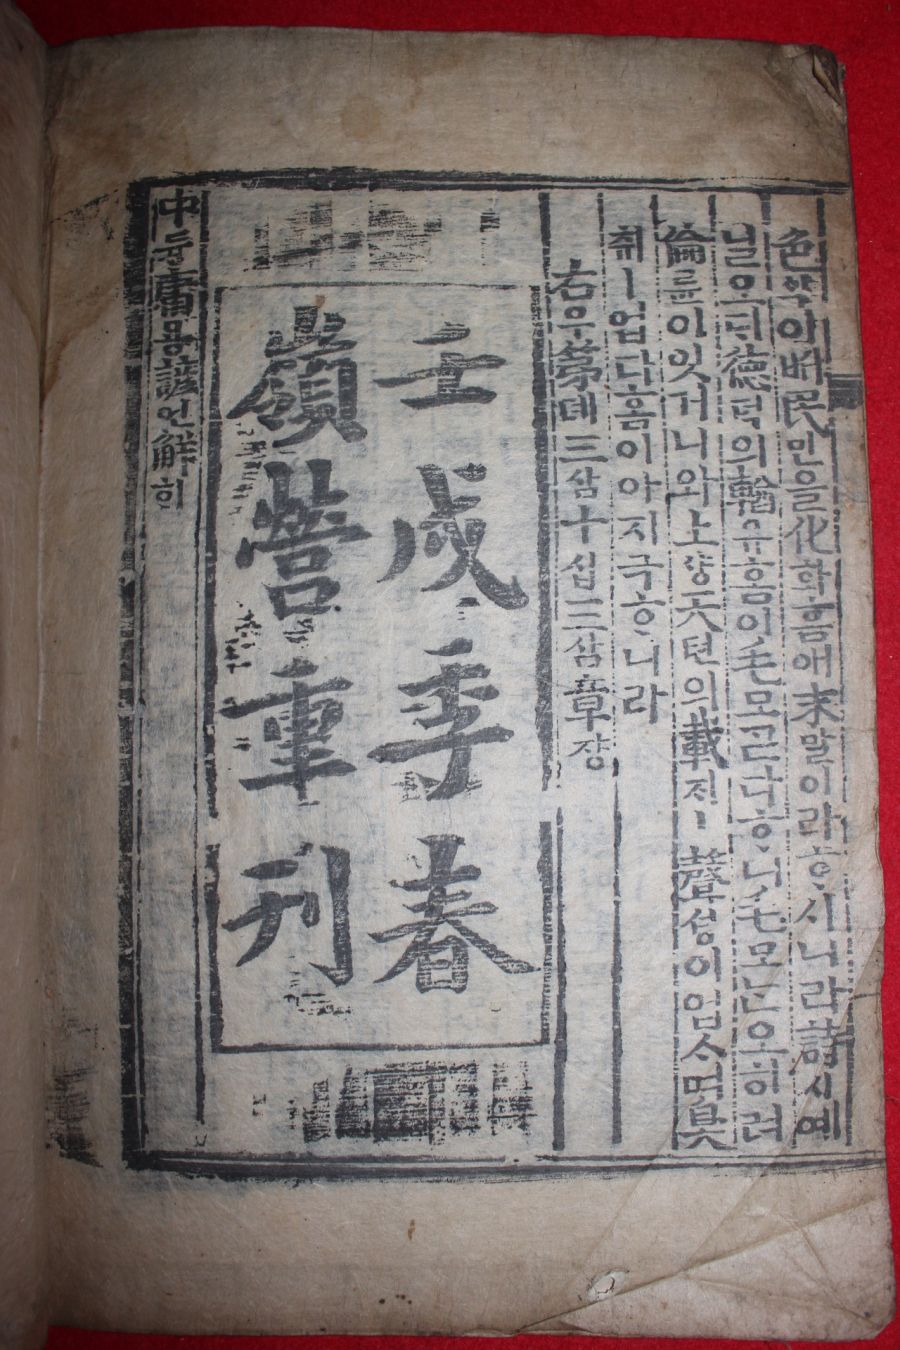 色ᄉᆡᆨ이ᄡᅥ民민을化화홈애末말이라ᄒᆞ시니라詩시예
닐오ᄃᆡ德덕의輶유홈이毛모ᄀᆞᆮ다ᄒᆞ니毛모ᄂᆞᆫ오히려
倫륜이잇거니와上샹天텬의載ᄌᆡㅣ聲셩이업스며臭
취ㅣ업다홈이아지극ᄒᆞ니라
右우第뎨三삼十십三삼章쟝
壬戌季春
嶺營重刊
中듕庸용諺언解ᄒᆡ